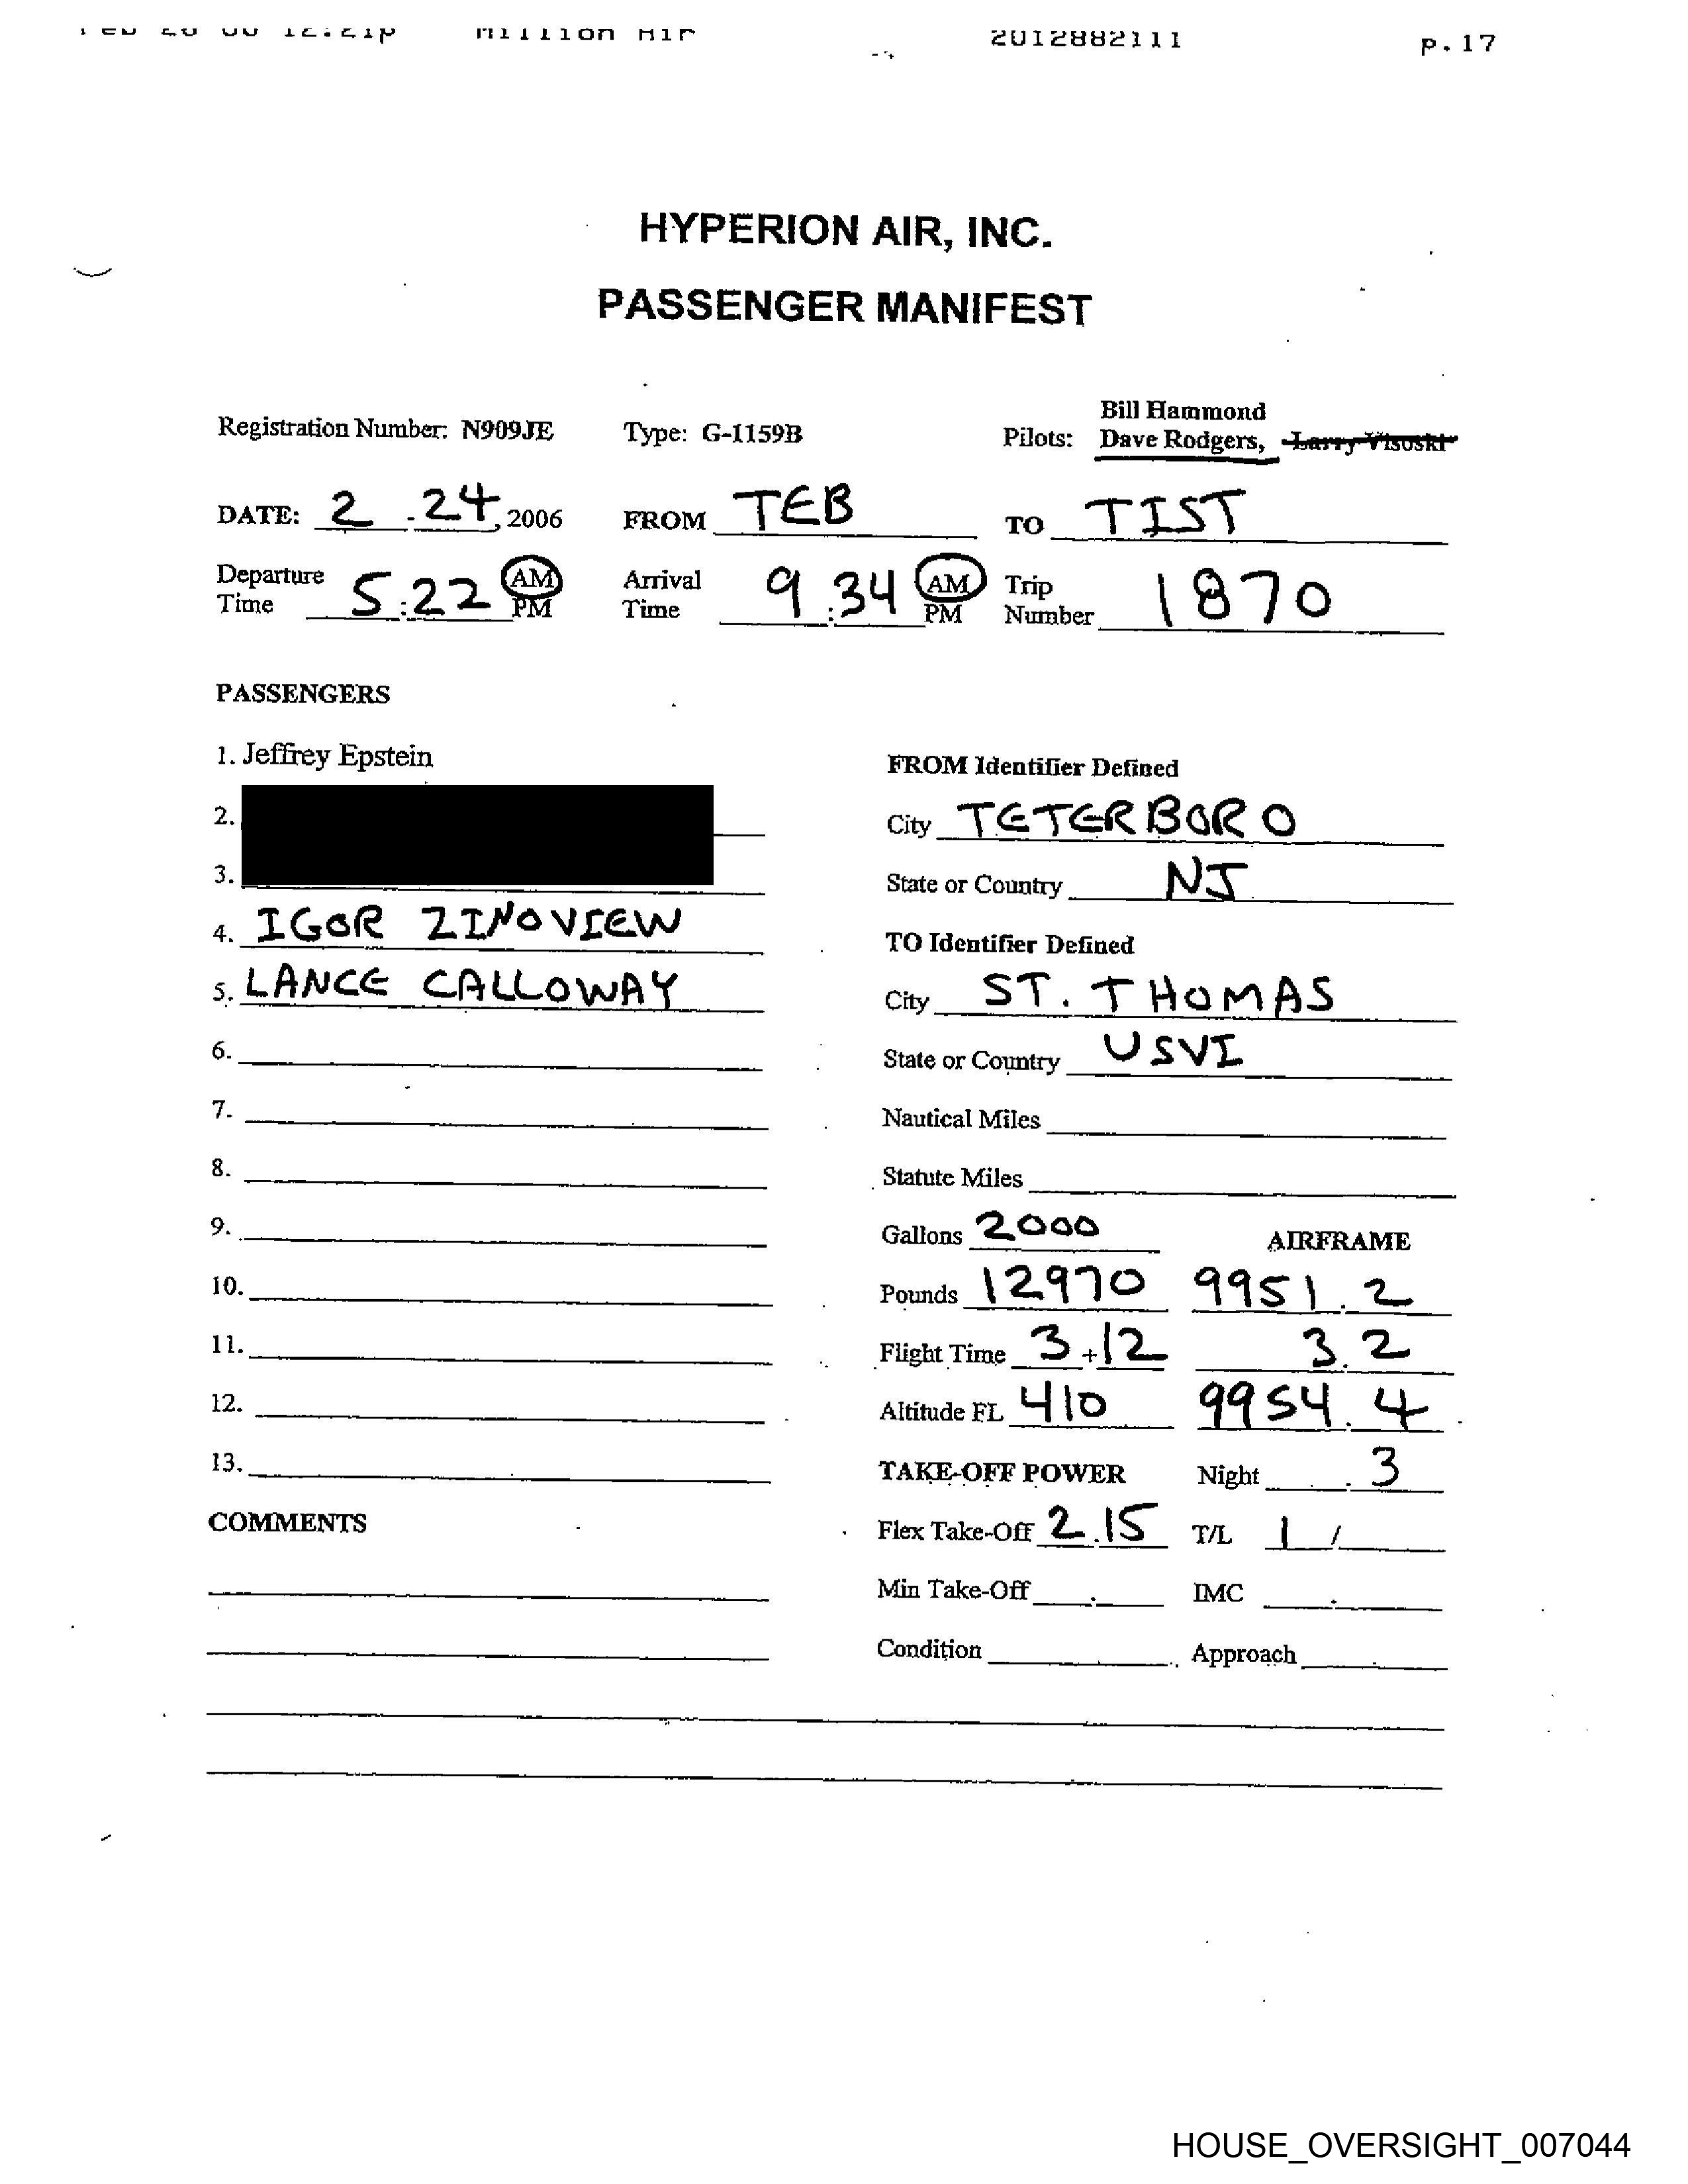 Million Air 2012882111 p.17
HYPERION AIR, INC.
PASSENGER MANIFEST
Registration Number: N909JE Type: G-1159B Pilots: Bill Hammond
Dave Rodgers, Larry Visoski
DATE: 2 . 24, 2006 FROM TEB TO TIST
Departure Time 5:22 AM PM Arrival Time 9:34 AM PM Trip Number 1870
PASSENGERS
1. Jeffrey Epstein
2.
3.
4. IGOR ZINOVIEW
5. LANCE CALLOWAY
6.
7.
8.
9.
10.
11.
12.
13.
COMMENTS
FROM Identifier Defined
City TETERBORO
State or Country NJ
TO Identifier Defined
City ST. THOMAS
State or Country USVI
Nautical Miles
Statute Miles
Gallons 2000 AIRFRAME
Pounds 12970 9951.2
Flight Time 3+12 3.2
Altitude FL 410 9954.4
TAKE-OFF POWER Night .3
Flex Take-Off 2.15 T/L 1 /
Min Take-Off . IMC .
Condition Approach
HOUSE_OVERSIGHT_007044